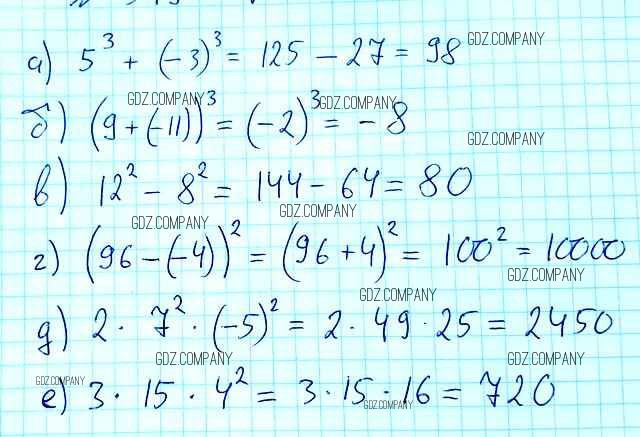 а) 5³ + (-3)³ = 125 - 27 = 98 GDZ.COMPANY
GDZ.COMPANY GDZ.COMPANY
б) (9 + (-11))³ = (-2)³ = -8
GDZ.COMPANY
в) 12² - 8² = 144 - 64 = 80
GDZ.COMPANY GDZ.COMPANY
г) (96 - (-4))² = (96 + 4)² = 100² = 10000
GDZ.COMPANY
GDZ.COMPANY
д) 2 · 7² · (-5)² = 2 · 49 · 25 = 2450
GDZ.COMPANY GDZ.COMPANY
GDZ.COMPANY
е) 3 · 15 · 4² = 3 · 15 · 16 = 720
GDZ.COMPANY